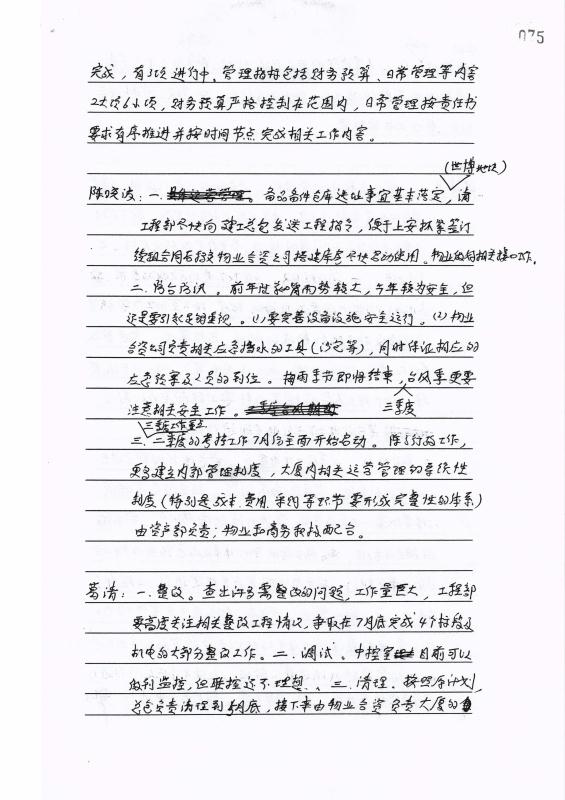 075
完成，有3项进行中。管理指标包括财务预算、日常管理等内容
2大项6小项，财务预算严格控制在范围内，日常管理按责任书
要求有序推进并按时间节点完成相关工作内容。
(世博地块)
陈晓波：一. 备品备件仓库选址事宜基本落定，请
工程部尽快向建工总包发送工程指令，便于上安抓紧签订
后 物业合资公司搭建库房尽快启动使用。物业做好相关接口工作。
二. 防台防汛。前年过 雨势较大，今年较为安全，但
还是要引起足够重视。(1)要完善设备设施安全运行。(2)物业
合资公司负责相关应急挡水的工具(沙包等)，同时保证相应的
应急预案及人员的到位。梅雨季节即将结束，台风季更要
注意相关安全工作。 三季度
三季度工作重点
三. 二季度的考核工作7月份全面开始启动。除了行政工作，
更多建立内部管理制度，大厦内相关运营管理的系统性
制度(特别是成本、费用、采购等环节要形成完整性的体系)
由资产部负责；物业和商务积极配合。
葛清：一. 整改。查出许多需整改的问题，工作量巨大，工程部
要高度关注相关整改工程情况，争取在7月底完成4个标段及
机电的大部分整改工作。二. 调试。中控室目前可以
做到监控，但联控还不理想。三. 清理。按照原计划，
总包负责清理到 月底，接下来由物业合资负责大厦的